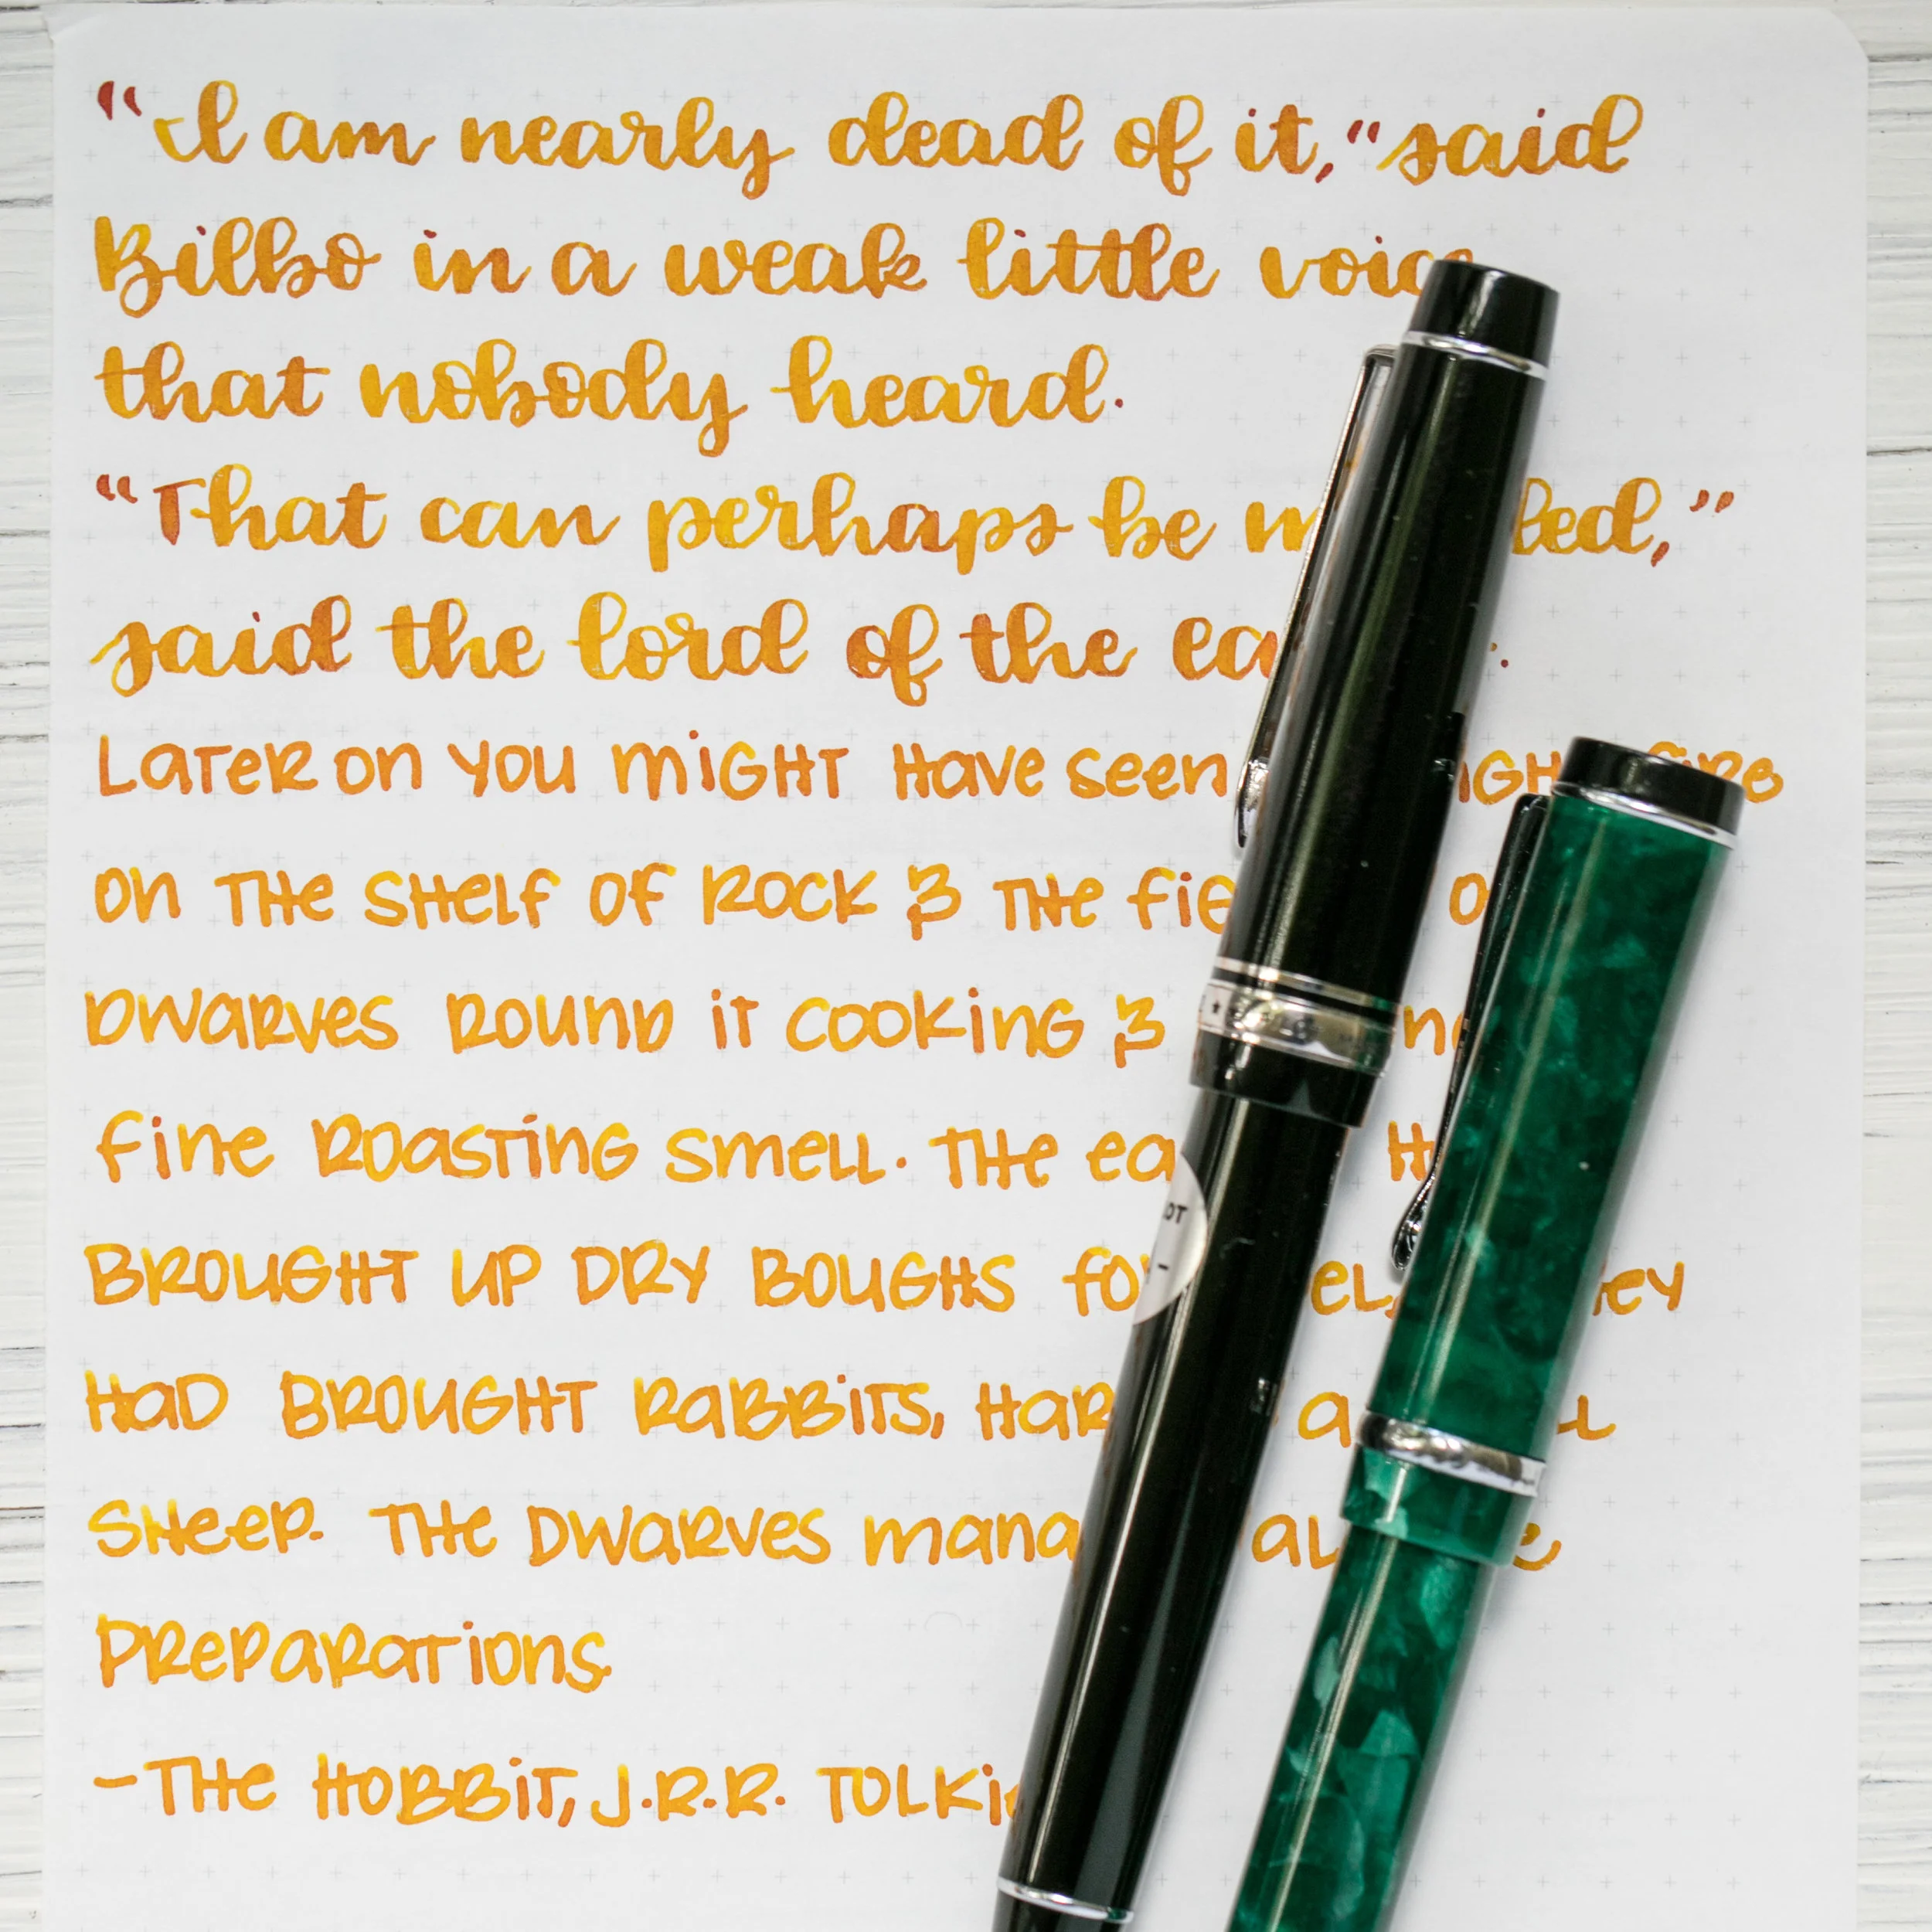 "I am nearly dead of it," said
Bilbo in a weak little voice
that nobody heard.
"That can perhaps be
said the lord of the
Later on you might have seen
on the shelf of rock & the
dwarves round it cooking &
fine roasting smell. The
brought up dry boughs
had brought rabbits,
sheep. The dwarves
preparations.
-The Hobbit, J.R.R. Tolkien